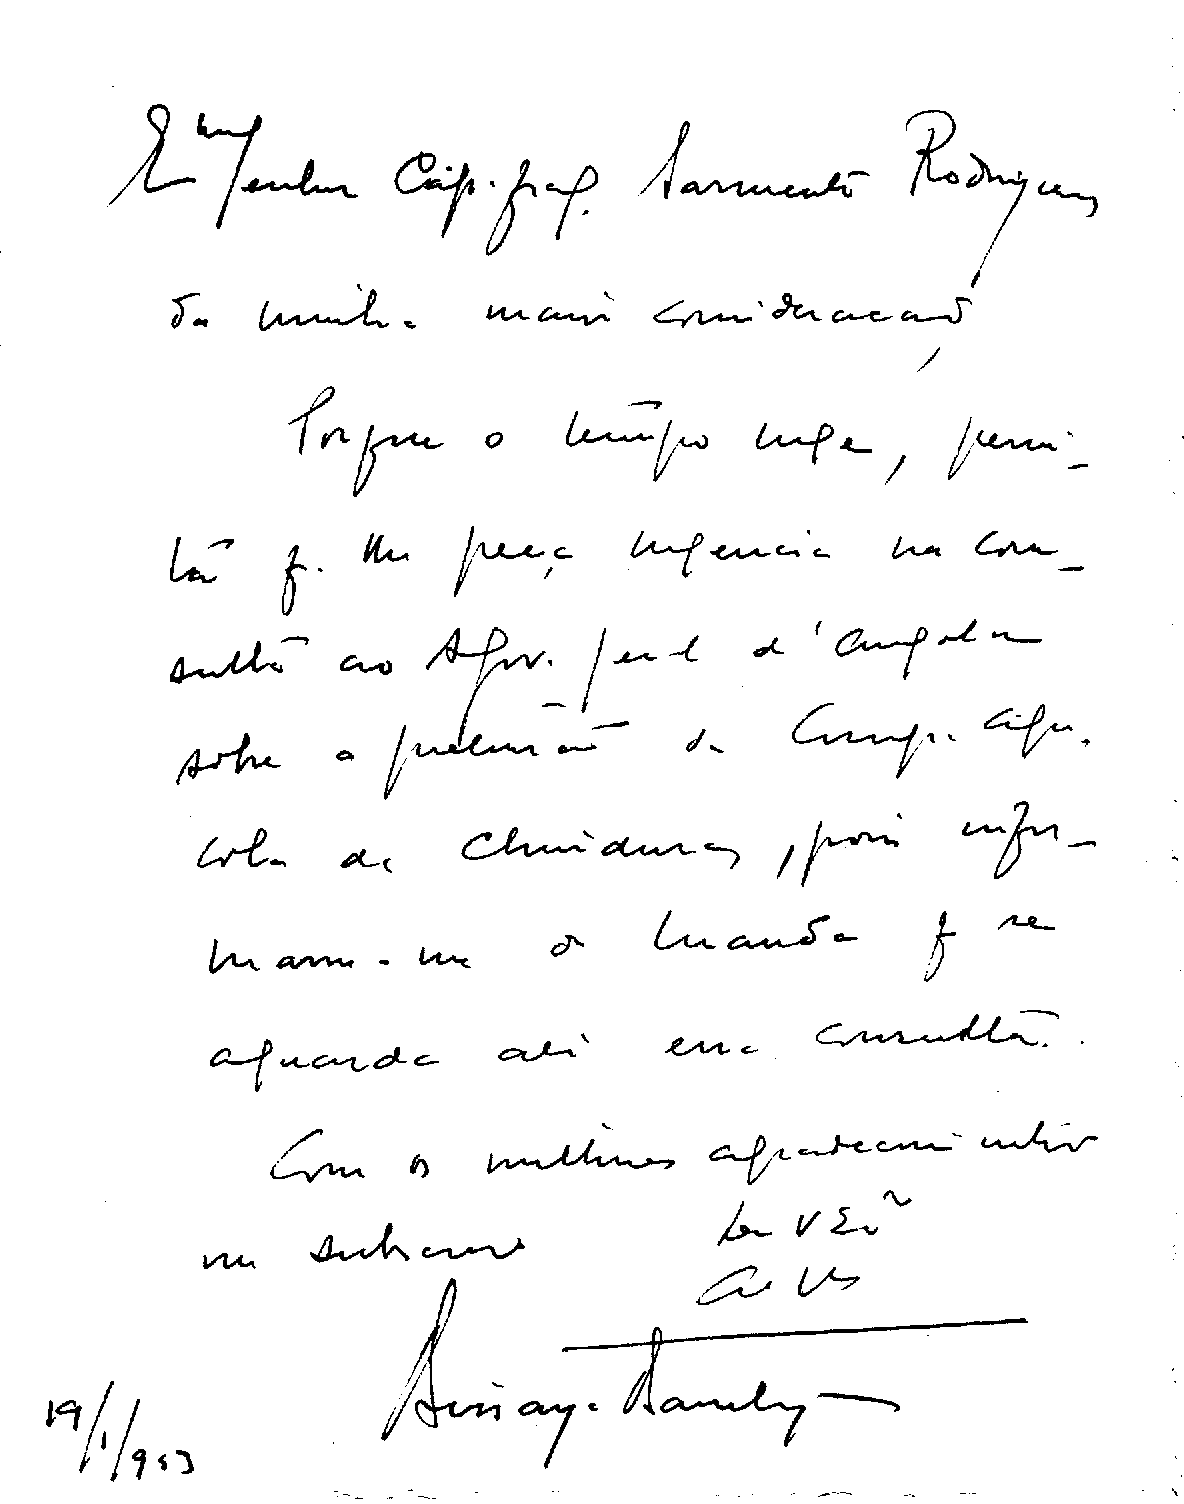 Exmº Senhor Cap. frag. Sarmento Rodrigues
da minha maior consideração
Porque o tempo urge, permi-
ta q. lhe peça urgencia na con-
sulta ao Gov. geral d'Angola
sobre a pretensão da Comp. Agri-
cola de
, pois infor-
maram-me de Luanda q se
aguarda ali essa consulta.
Com os melhores agradecimentos
me subscrevo
De V Exª
19/1/953